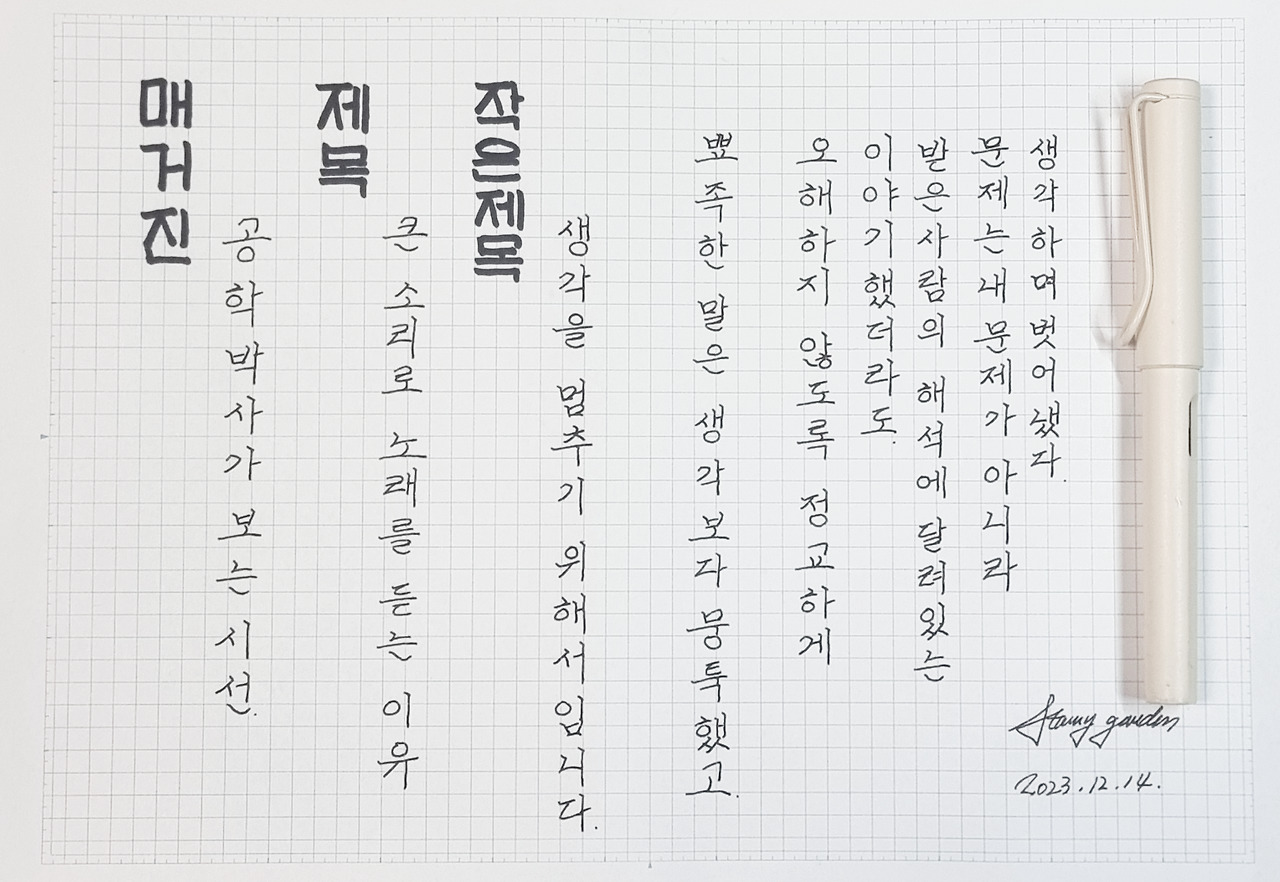 매거진
공학박사가 보는 시선.
제목
큰 소리로 노래를 듣는 이유
작은제목
생각을 멈추기 위해서입니다.
뾰족한 말은 생각보다 뭉툭했고.
오해하지 않도록 정교하게
이야기했더라도.
받은사람의 해석에 달려있는
문제는 내 문제가 아니라
생각하며 벗어냈다.
Starry garden
2023.12.14.